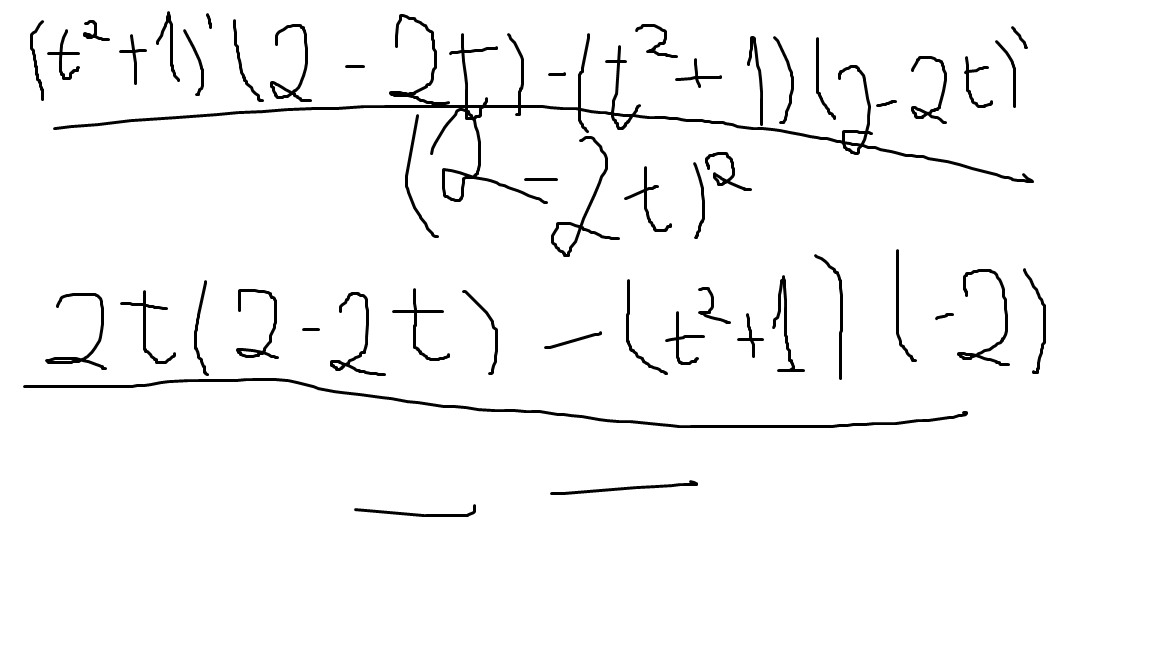 (t²+1)'(2-2t)-(t²+1)(2-2t)'
(2-2t)²
2t(2-2t)-(t²+1)(-2)